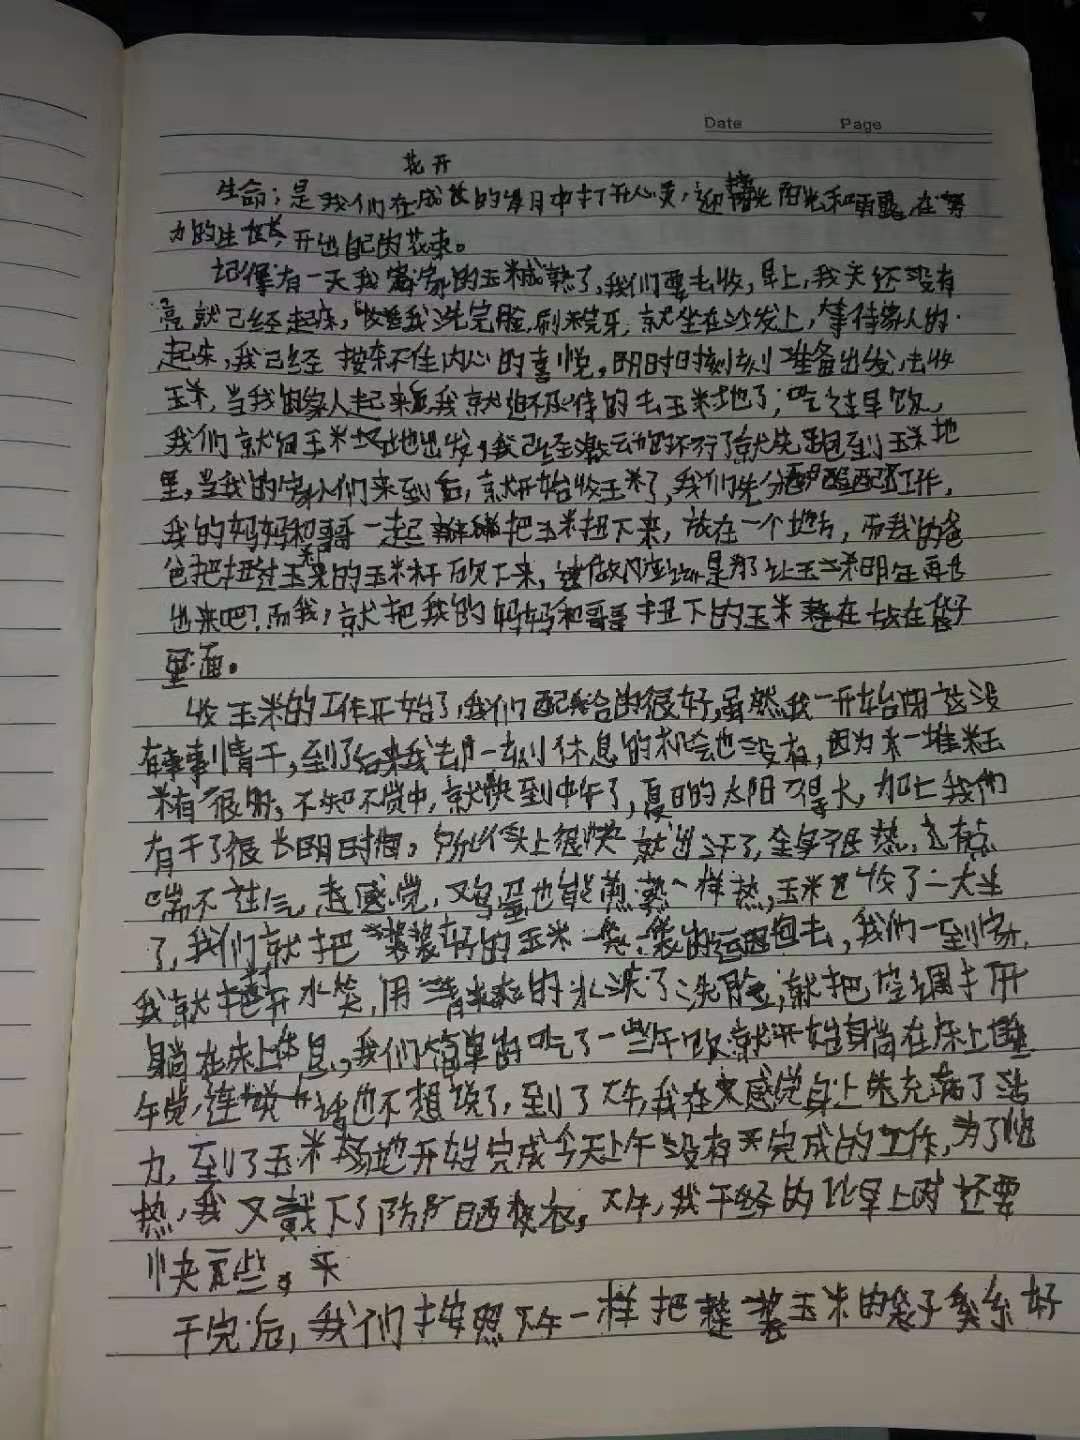 Date Page
花开
生命；是我们在成长的岁月中打开心灵，迎接阳光和雨露，在努
力的生长，开出自己的花束。
记得有一天我家的玉米成熟了，我们要去收，早上，我天还没有
亮就己经起床，我洗完脸，刷完牙，就坐在沙发上，等待家人的
起床，我己经按奈不住内心的喜悦，时时刻刻准备出发，去收
玉米，当我的家人起来我就迫不及待的去玉米地了，吃过早饭，
我们就向玉米地出发，我己经激动的不行了就先跑到玉米地
里，当我的家人们来到后，就开始收玉米了，我们先分配工作，
我的妈妈和哥哥一起把玉米扭下来，放在一个地方，而我的爸
爸把扭过玉米的玉米杆砍下来，这做应该是为了让玉米明年再长
出来吧？而我，就把我的妈妈和哥哥扭下的玉米放在袋子
里面。
收玉米的工作开始了，我们配合的很好，虽然我一开始没
有事情干，到了后来我去休息的机会也没有，因为一堆玉
米有很多，不知不觉中，就快到中午了，夏日的太阳，加上我们
有干了很长时间，所以头上很快就出汗了，全身很热，有点
喘不过气，感觉，鸡蛋也能煎熟一样热，玉米也收了一大半
了，我们就把装好的玉米一袋一袋的运回去，我们一到家，
我就打开水笼，用的水洗了洗脸，就把空调打开
躺在床上休息，我们简单的吃了一些午饭就开始躺在床上睡
午觉，连话也不想说了，到了下午，我感觉身上充满了活
力，到了玉米场地开始完成今天上午没有完成的工作，为了
热，我又戴下了防晒衣，下午，我干经的比早上时还要
快一些。
干完后，我们按照下午一样把装玉米的袋子系好